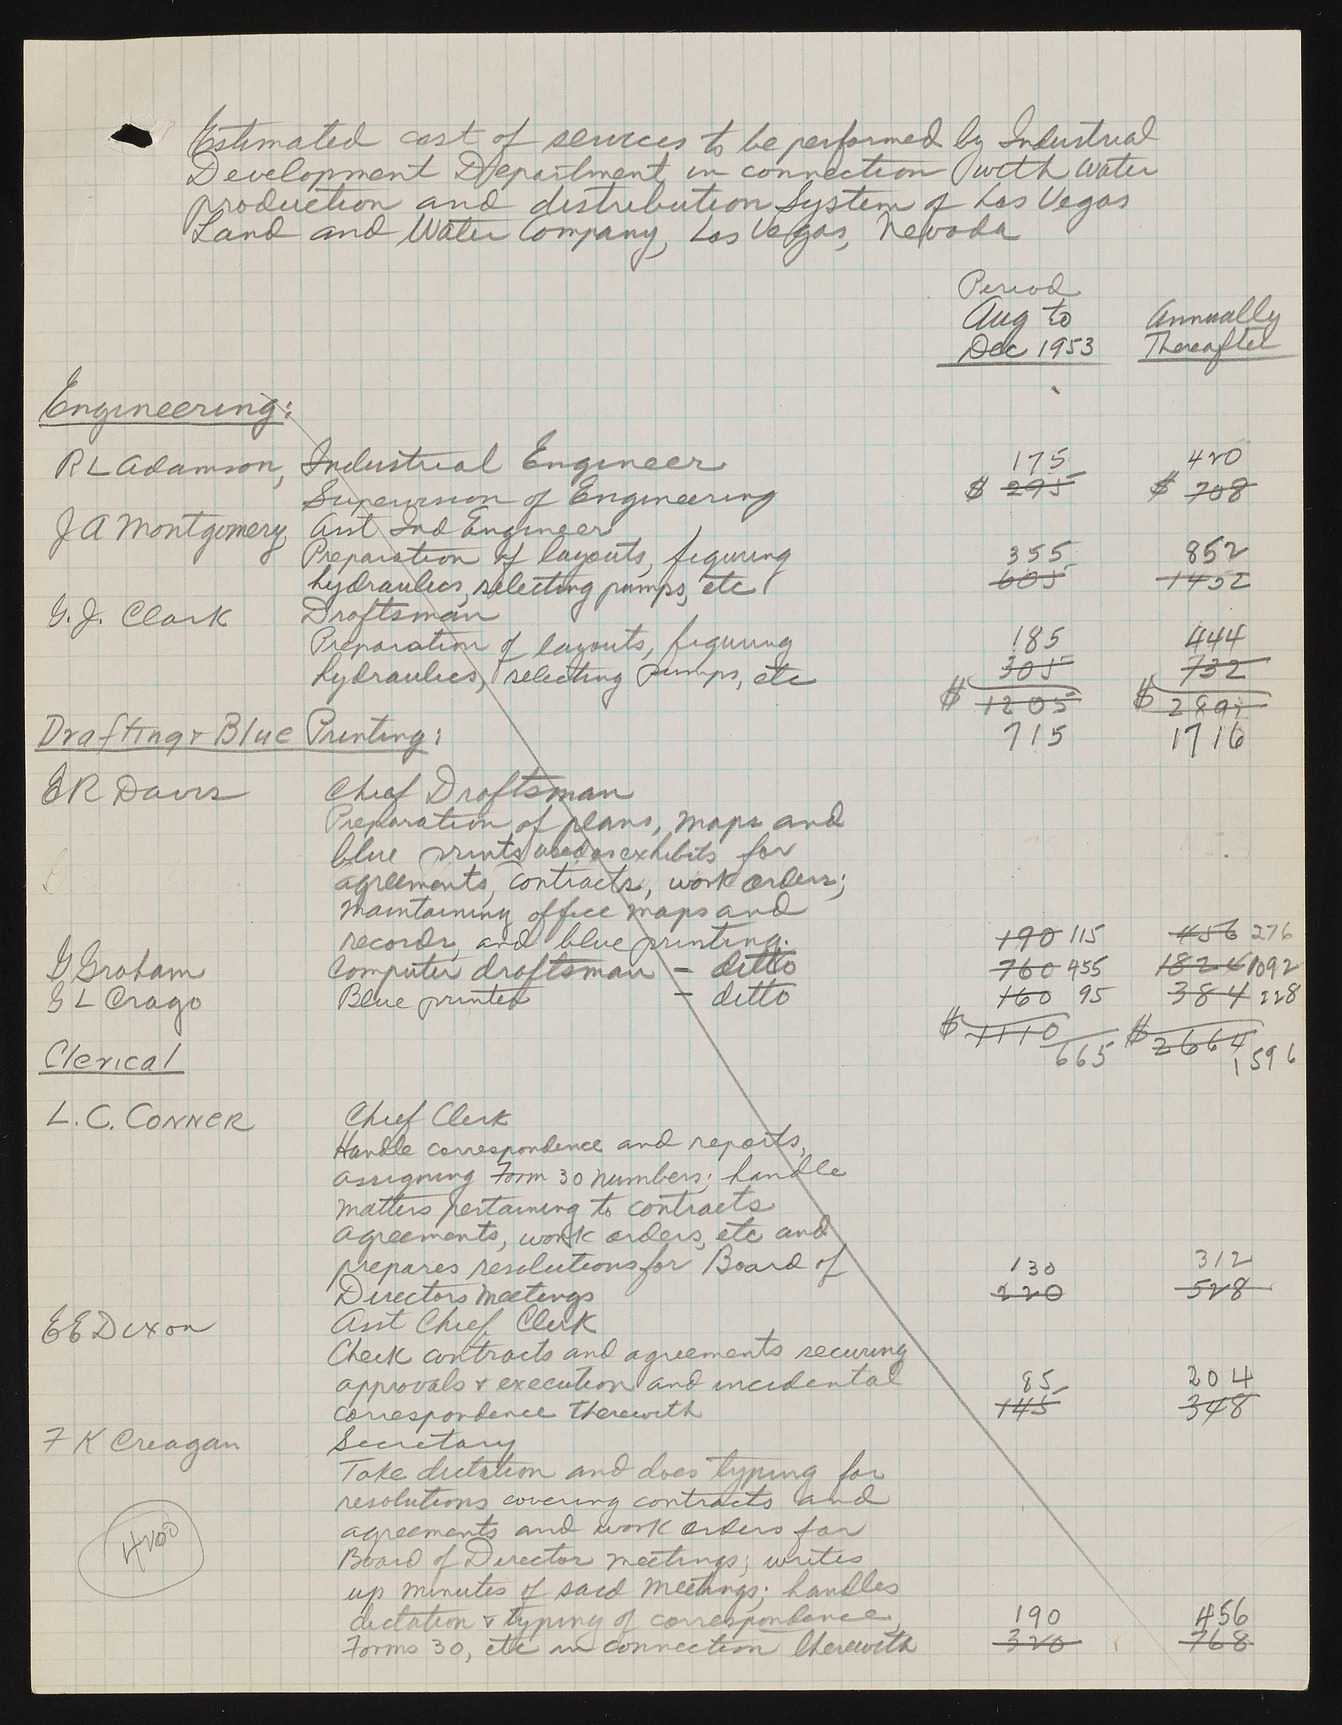 Estimated cost of services to be performed by Industrial
Development Department in connection with water
production and distribution System of Las Vegas
Land and Water Company, Las Vegas, Nevada
Period
Aug to Annually
Dec 1953 Thereafter
Engineering:
R L Adamson, Industrial Engineer 175 420
Supervision of Engineering $ 295 $ 708
J A Montgomery Asst Ind Engineer
Preparation of layouts, figuring 355 852
hydraulics, selecting pumps, etc 605 1452
G. J. Clark Draftsman
Preparation of layouts, figuring 185 444
hydraulics, selecting pumps, etc 305 732
$ 1205 $ 2892
Drafting & Blue Printing: 715 1716
E R Davis Chief Draftsman
Preparation of plans, maps and
blue prints used as exhibits for
agreements, contracts, work orders;
maintaining office maps and
records, and blue printing. 190 115 456 276
G Graham Computer draftsman - ditto 760 455 1824 1092
G L Crago Blue printer - ditto 160 95 384 228
$ 1110 $ 2664
Clerical 665 1596
L. C. CONNER Chief Clerk
Handle correspondence and reports,
assigning Form 30 numbers; handle
matters pertaining to contracts
agreements, work orders, etc and
prepares resolutions for Board of 130 312
Directors Meetings 220 528
E E Dixon Asst Chief Clerk
Check contracts and agreements securing
approvals & execution and incidental 85 204
correspondence therewith 145 348
F K Creagan Secretary
Take dictation and does typing for
resolutions covering contracts and
agreements and work orders for
4200 Board of Director meetings; writes
up minutes of said meetings; handles
dictation & typing of correspondence, 190 456
Forms 30, etc in connection therewith 320 768